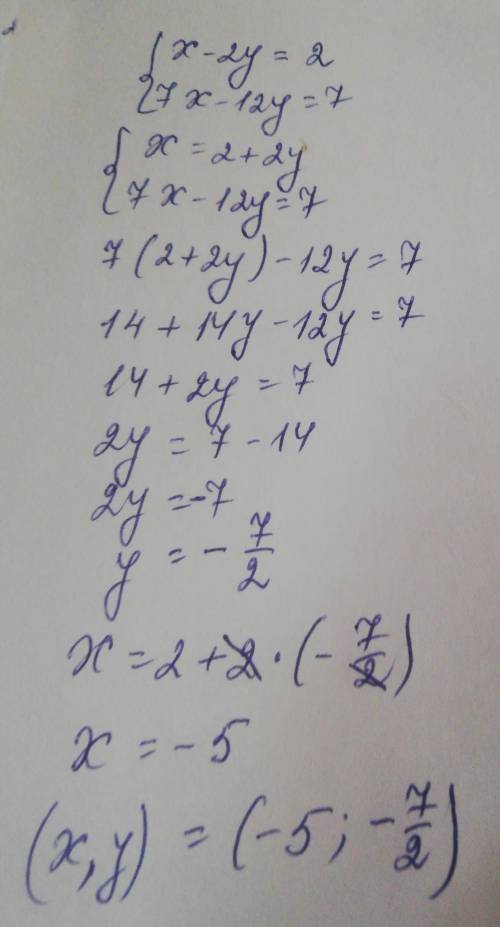 {x-2y = 2
{7x-12y=7
{x = 2+2y
{7x-12y=7
7(2+2y)-12y=7
14+14y-12y=7
14+2y=7
2y = 7-14
2y =-7
y = -7/2
x=2+2·(-7/2)
x = -5
(x,y) = (-5; -7/2)